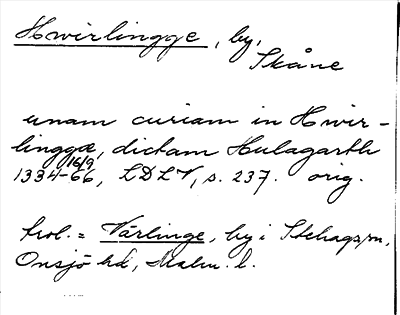 Hwirlingge, by,
Skåne
unam curiam in Hwir-
linggæ, dictam Hulagarth
16/9
1334-66, LDLV, s. 237. orig.
trol. = Värlinge, by i Stehags sn,
Onsjö hd, Malm. l.